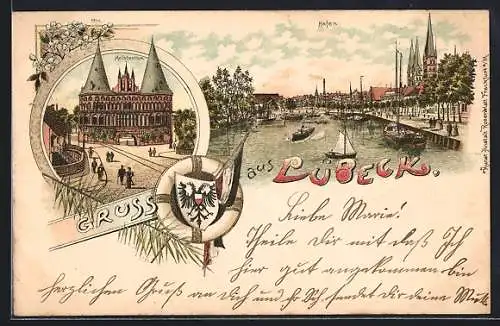 Holstenthor
Hafen
GRUSS
aus LÜBECK.
Liebe Marie!
Theile dir mit daß Ich
hier gut angekommen bin
herzlichen Gruß an Dich und
sendet dir deine